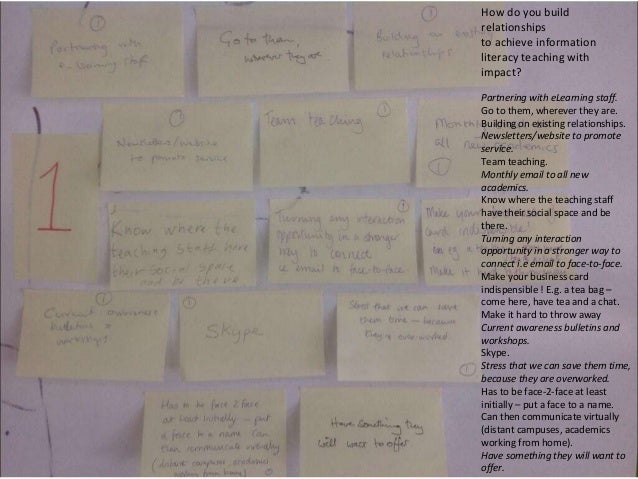 How do you build
relationships
to achieve information
literacy teaching with
impact?
Partnering with eLearning staff.
Go to them, wherever they are.
Building on existing relationships.
Newsletters/website to promote
service.
Team teaching.
Monthly email to all new
academics.
Know where the teaching staff
have their social space and be
there.
Turning any interaction
opportunity in a stronger way to
connect i.e email to face-to-face.
Make your business card
indispensible ! E.g. a tea bag –
come here, have tea and a chat.
Make it hard to throw away
Current awareness bulletins and
workshops.
Skype.
Stress that we can save them time,
because they are overworked.
Has to be face-2-face at least
initially – put a face to a name.
Can then communicate virtually
(distant campuses, academics
working from home).
Have something they will want to
offer.
1
Partnering with
e-learning staff
Go to them,
wherever they are
Building on existing
relationships
Newsletters/website
to promote service
Team teaching
Monthly
all new academics
Know where the
teaching staff have
their social space
and be there
Turning any interaction
opportunity in a stronger
way to connect
ie email to face-to-face
Make your
card indispensible!
eg a
Make it
Current awareness
bulletins &
workshops
Skype
Stress that we can save
them time – because
they're overworked
Has to be face 2 face
at least initially – put
a face to a name. Can
then communicate virtually
(distant campuses, academics
working from home)
Have something they
will want to offer